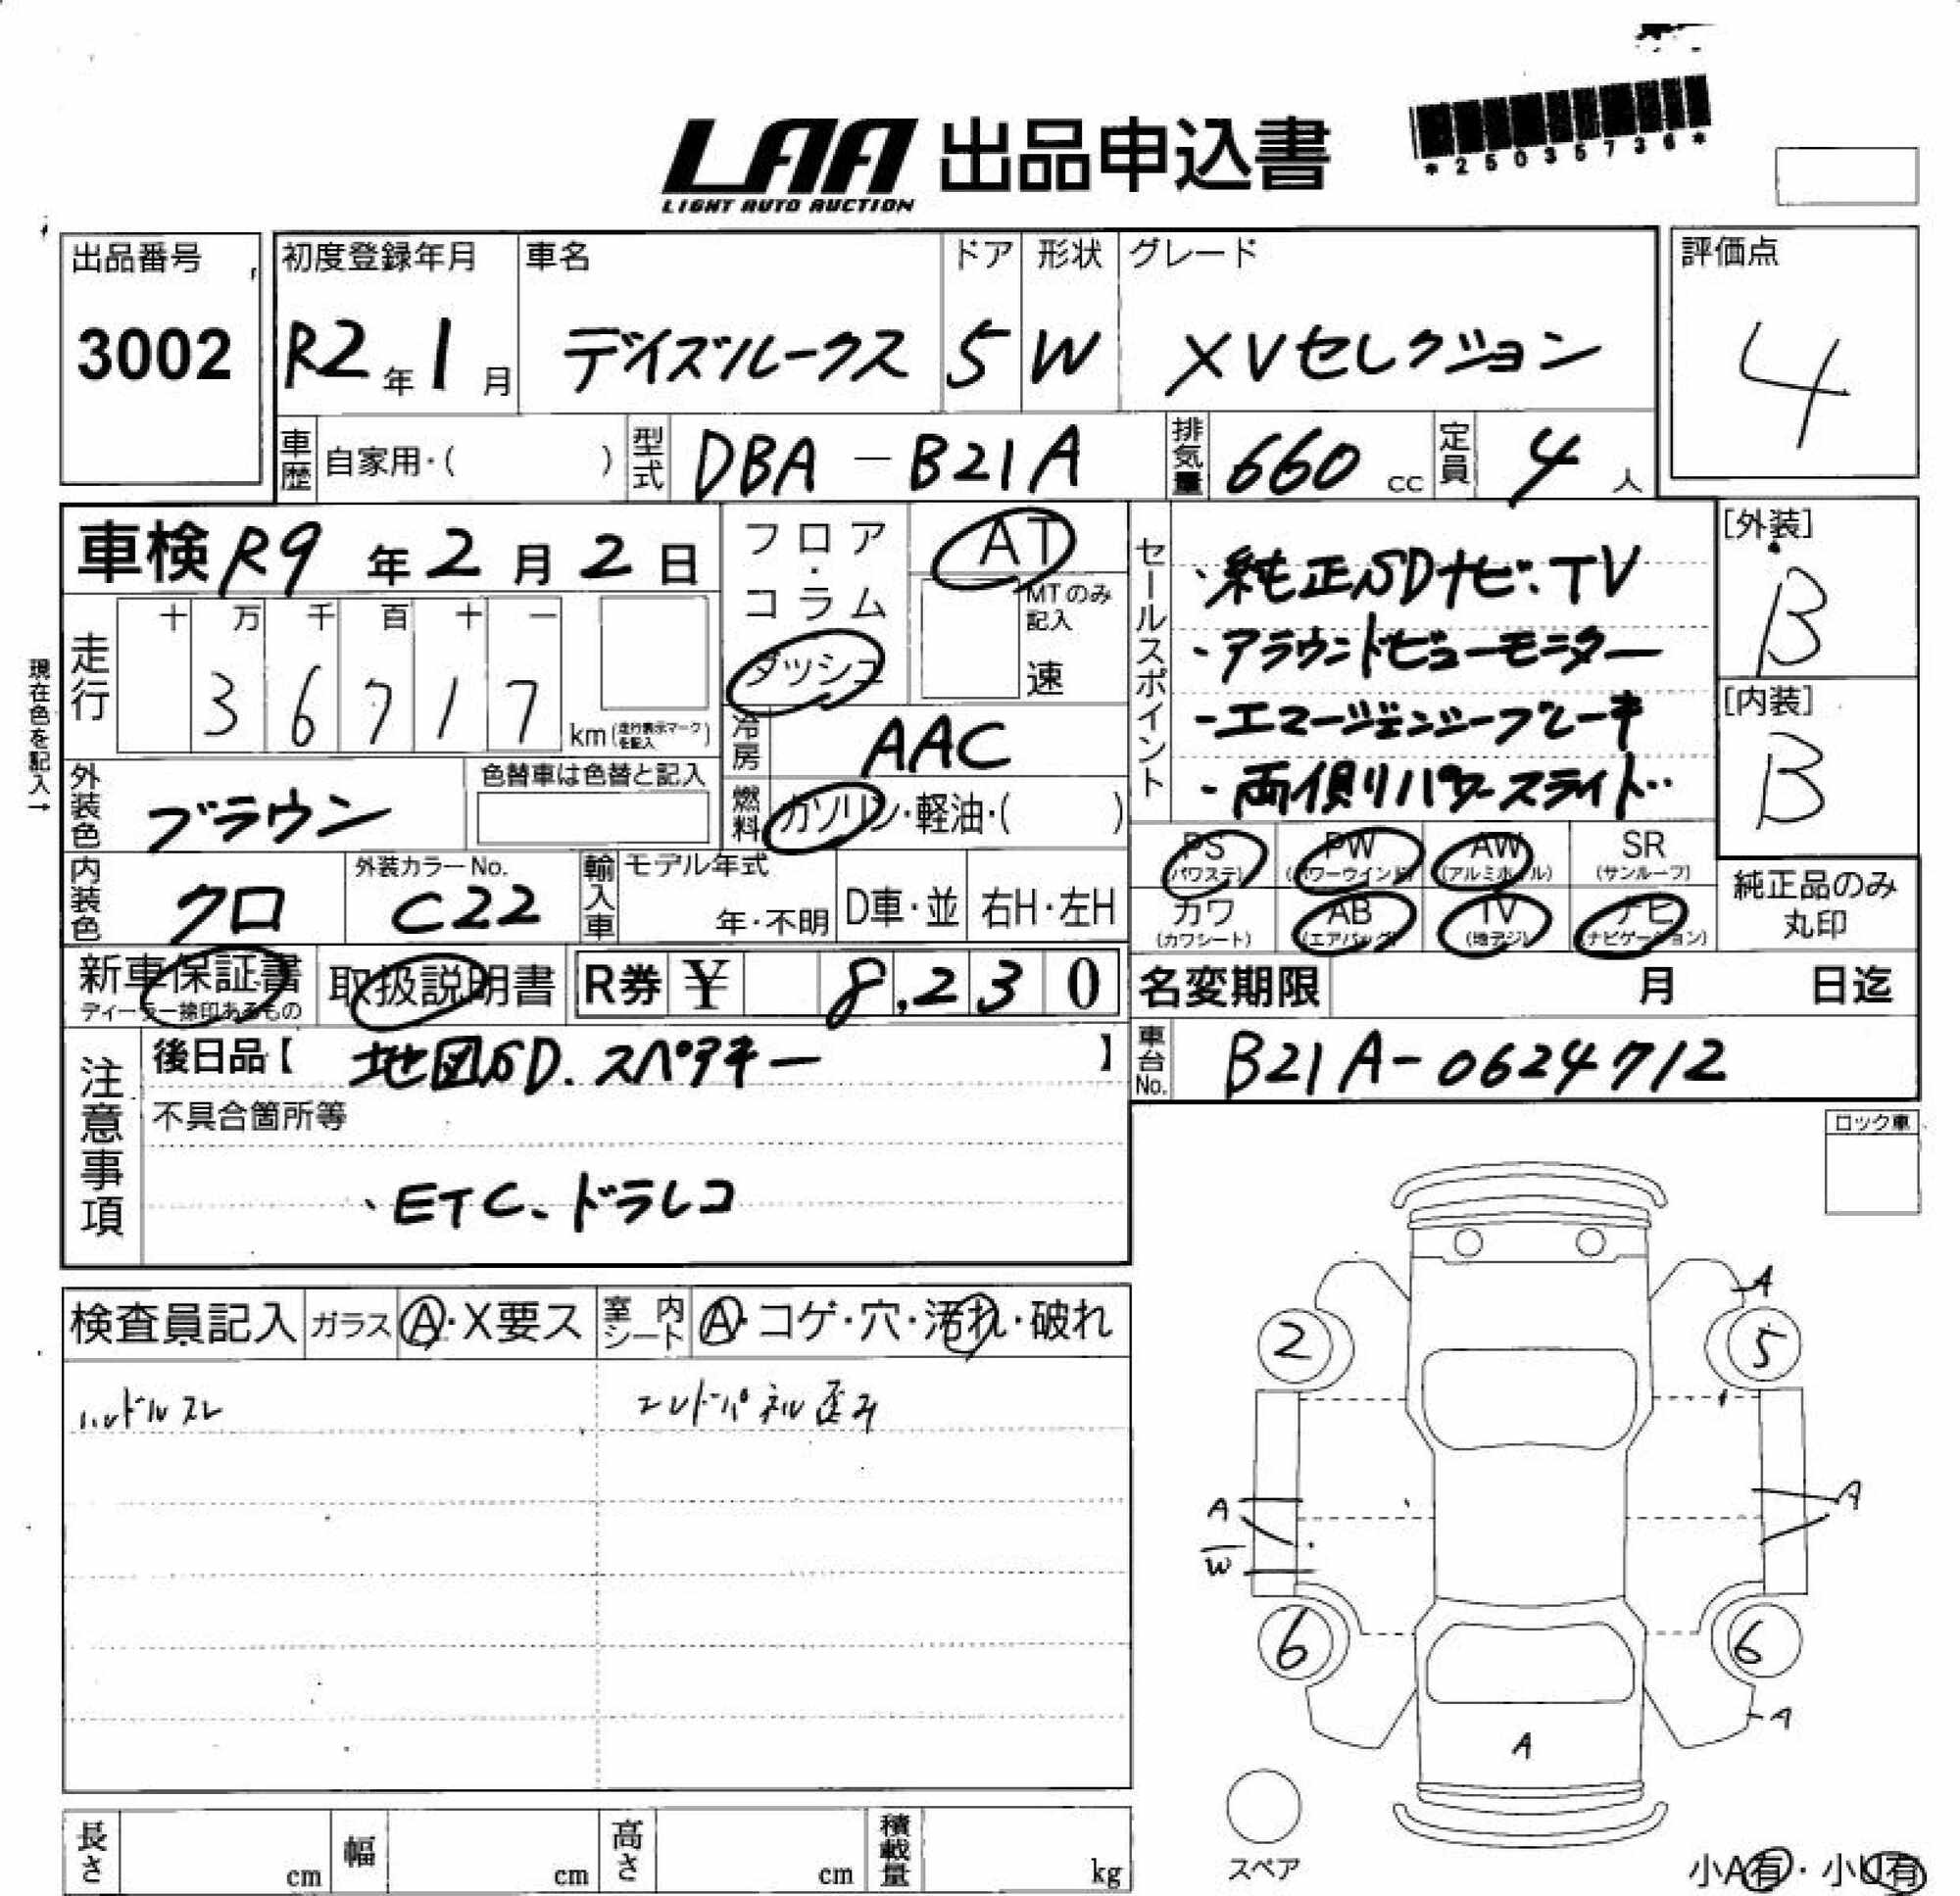 LAA 出品申込書
LIGHT AUTO AUCTION
*25035736*
出品番号
3002
初度登録年月
R2年1月
車名
デイズルークス
ドア
5
形状
W
グレード
XVセレクション
評価点
4
車歴 自家用・( )
型式 DBA-B21A
排気量 660 cc
定員 4 人
車検 R9年2月2日
フロア・コラム
ダッシュ
AT
MTのみ記入
速
セールスポイント
・純正SDナビ・TV
・アラウンドビューモニター
・エマージェンシーブレーキ
・両側パワースライド
[外装]
B
[内装]
B
現在色を記入→
走行
十 万 千 百 十 一
3 6 7 1 7
km(走行表示マークを記入)
冷房 AAC
外装色 ブラウン
色替車は色替と記入
燃料 ガソリン・軽油・( )
PS (パワステ)
PW (パワーウインド)
AW (アルミホイル)
SR (サンルーフ)
カワ (カワシート)
AB (エアバッグ)
TV (地デジ)
ナビ (ナビゲーション)
純正品のみ
丸印
内装色 クロ
外装カラーNo.
C22
輸入車
モデル年式
年・不明
D車・並
右H・左H
新車保証書
ディーラー捺印あるもの
取扱説明書
R券 ¥ 8,230
名変期限 月 日迄
車台No. B21A-0624712
注意事項
後日品【 地図SD. スペアキー 】
不具合箇所等
・ETC、ドラレコ
ロック車
検査員記入
ガラス A・X要ス
室内シート A・コゲ・穴・汚れ・破れ
ハンドルスレ
エンドパネル歪み
A
2
5
A
A
W
6
6
A
A
スペア
小A有・小U有
長さ cm
幅 cm
高さ cm
積載量 kg